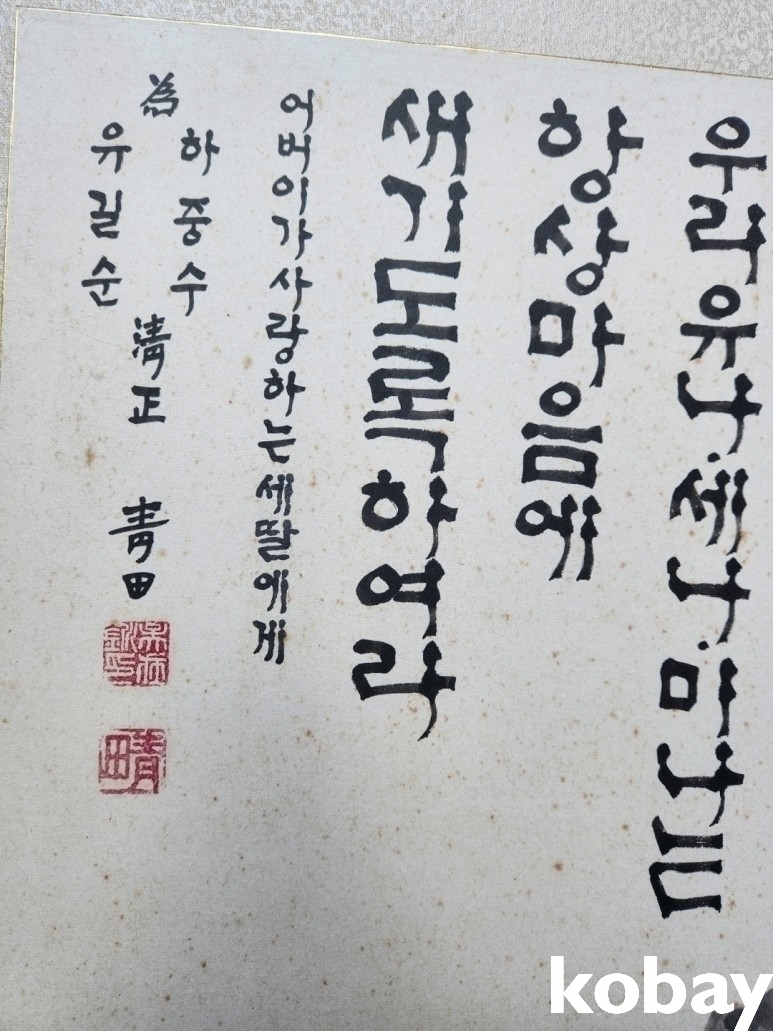 우리유나·세나·미나는
항상마음에
새기도록하여라
어버이가사랑하는세딸에게
為
하중수
유길순
清正
青田
青田
kobay